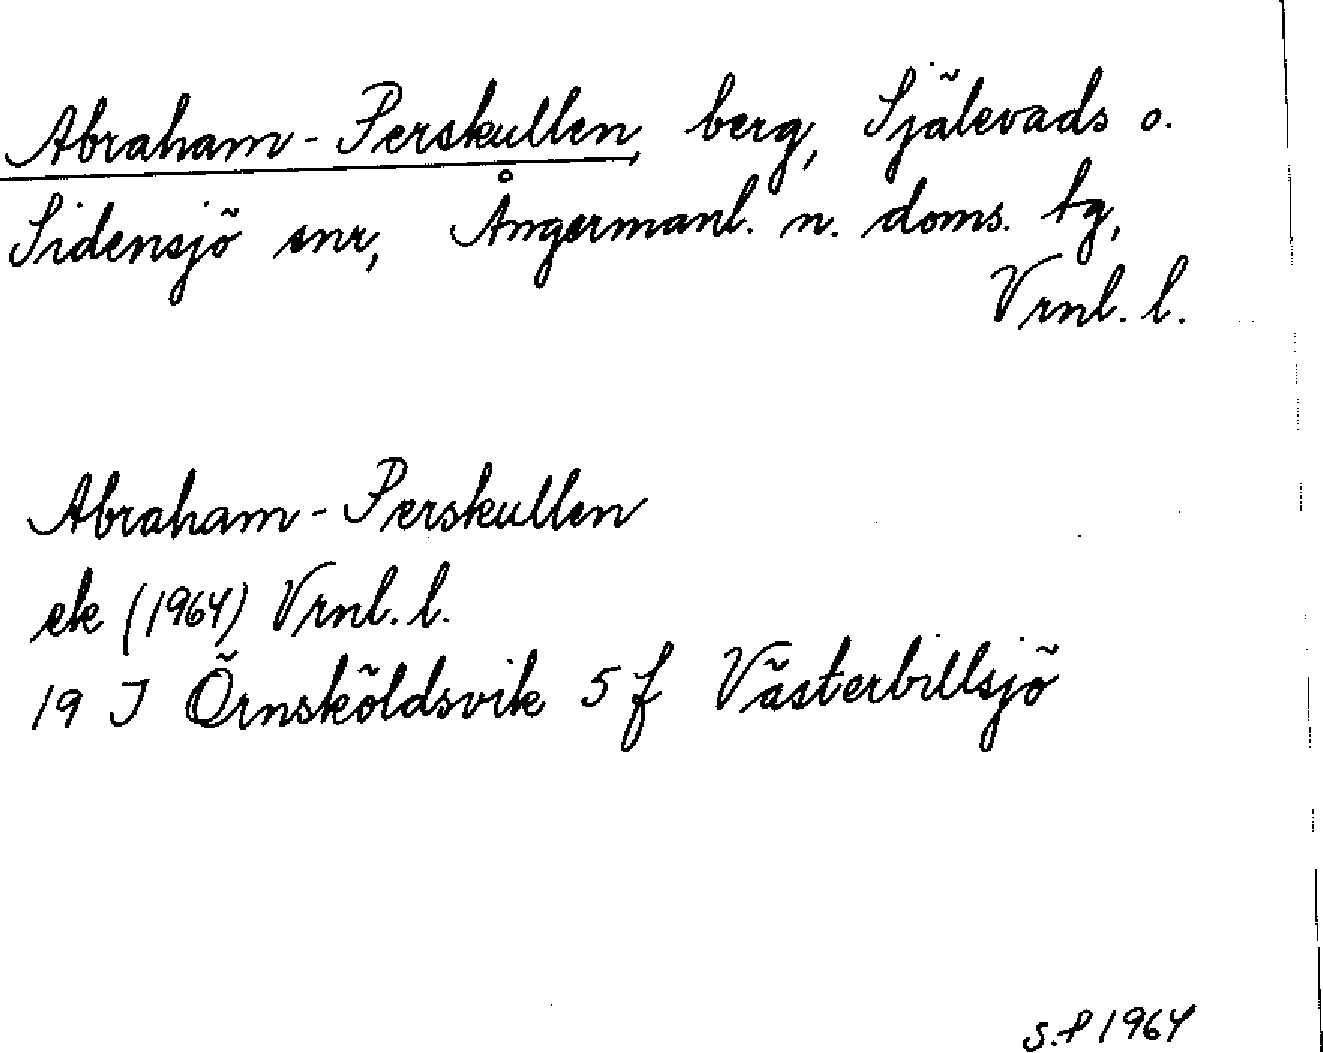 Abraham-Perskullen, berg, Själevads o.
Sidensjö snr, Ångermanl. n. doms. tg,
Vrnl. l.
Abraham-Perskullen
ek (1964) Vrnl. l.
19 J Örnsköldsvik 5 f Västerbillsjö
S.P 1964